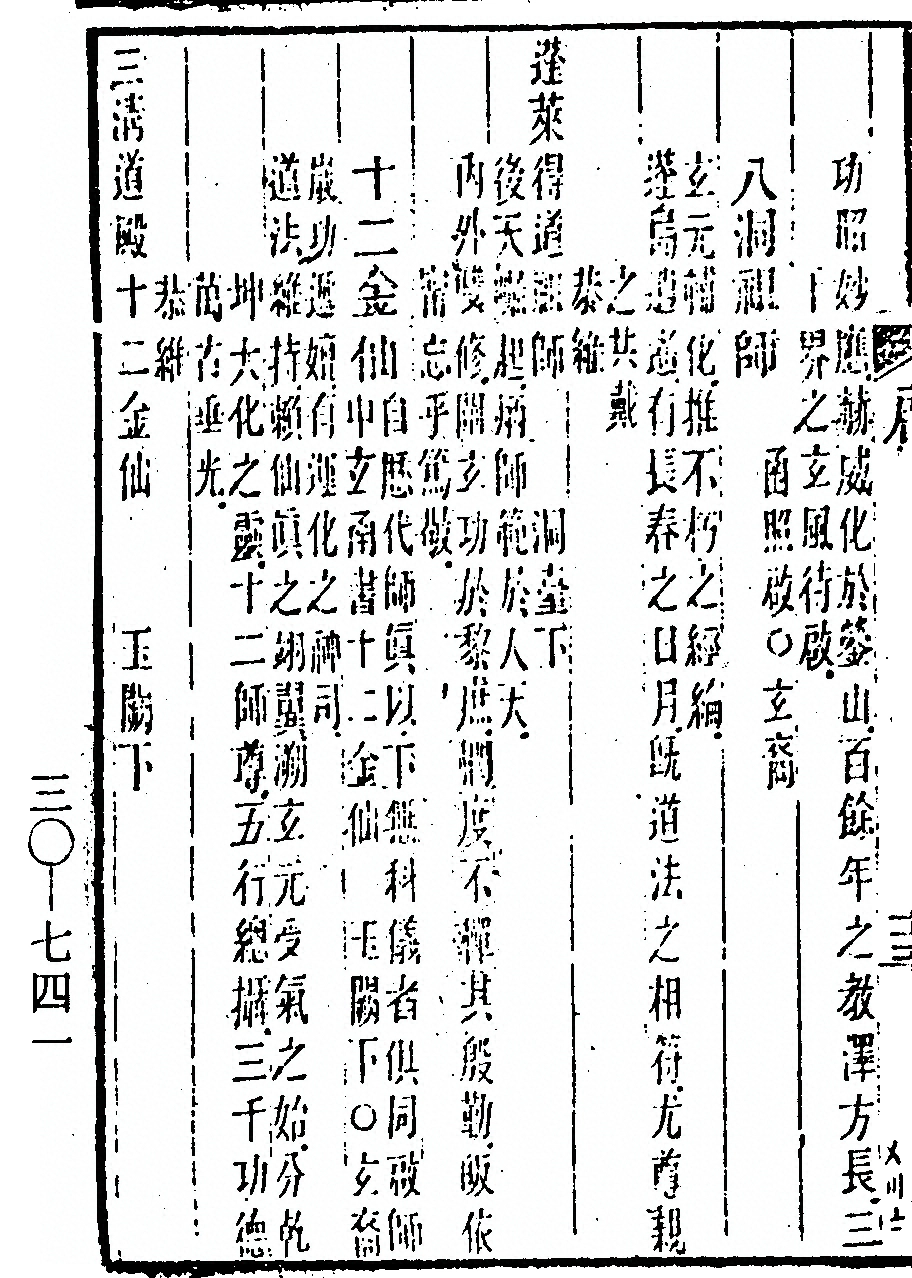 功昭妙應赫威化於鑾山百餘年之教澤方長三
十界之玄風待啟
八洞祖師　甬照啟○玄裔
玄元輔化推不朽之經綸
蓬島遐道有長春之日月既道法之相符尤尊親
之共戴
恭維
蓬萊得道祖師　洞臺下
後天崛起為師範於人天
內外雙修開玄功於黎庶制度不憚其殷勤皈依
能忘乎篤敬
十二金仙　自歷代師眞以下無科儀者俱同啟師
申玄甬書十二金仙　玉闕下○玄裔
嚴功遐嬗自運化之神司
道法維持賴仙眞之翊翼溯玄元受氣之始分乾
坤大化之靈十二師尊五行總攝三千功德
萬古垂光
恭維
三清道殿十二金仙　玉闕下
三〇—七四一